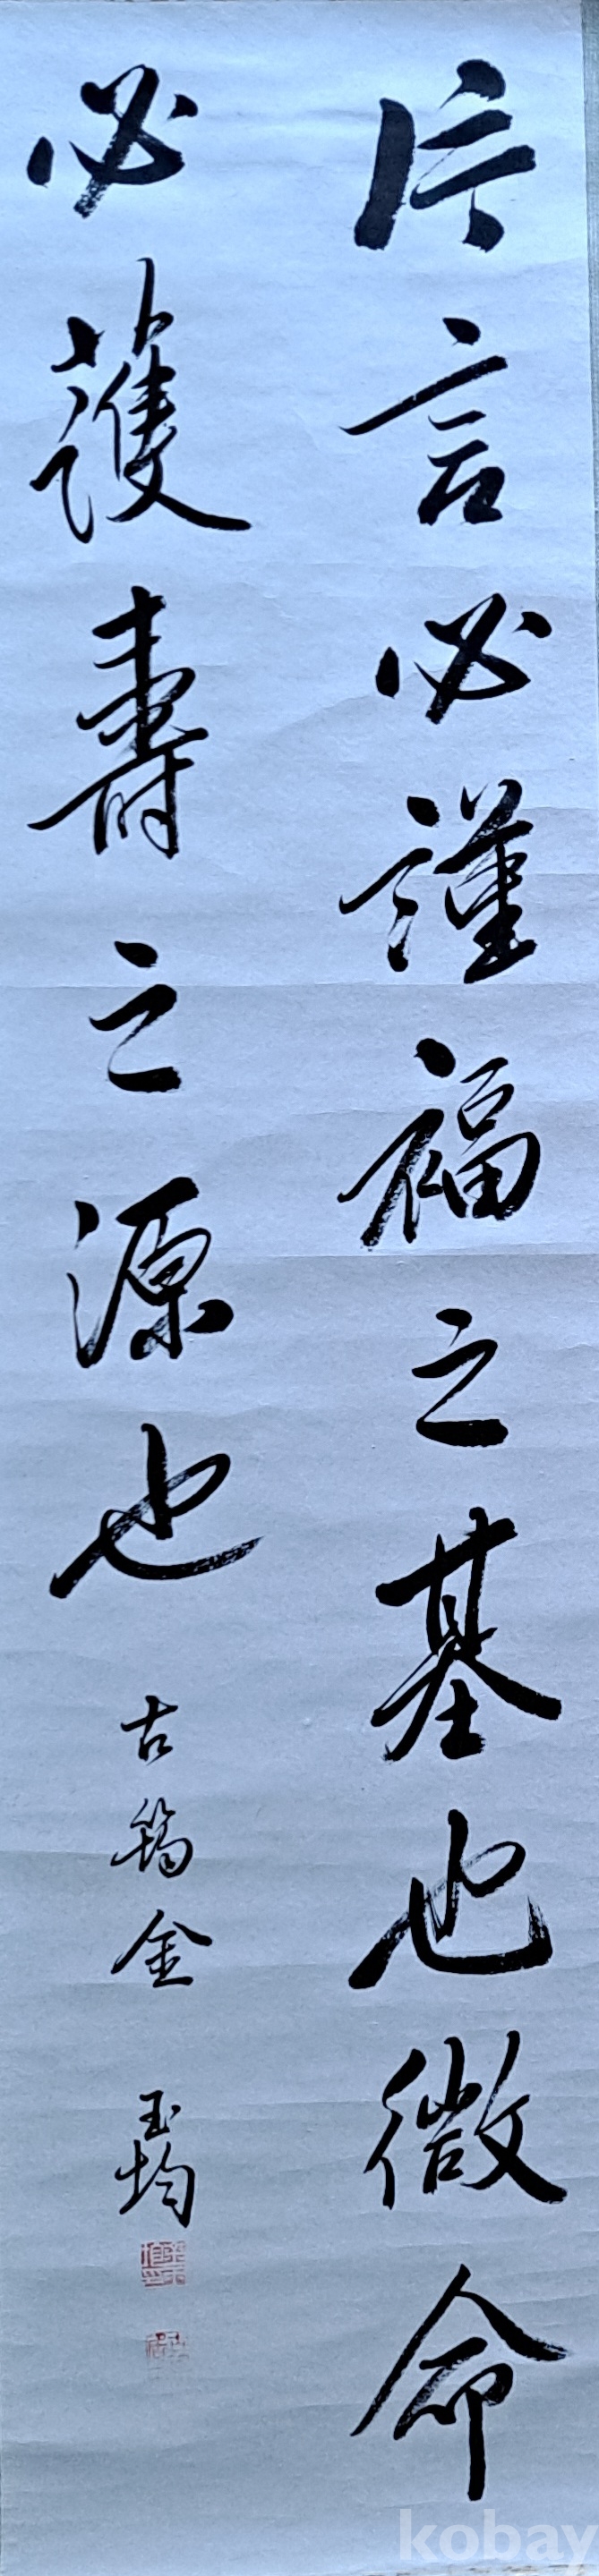 片言必謹福之基也微命
必護壽之源也 古筠金玉均
kobay